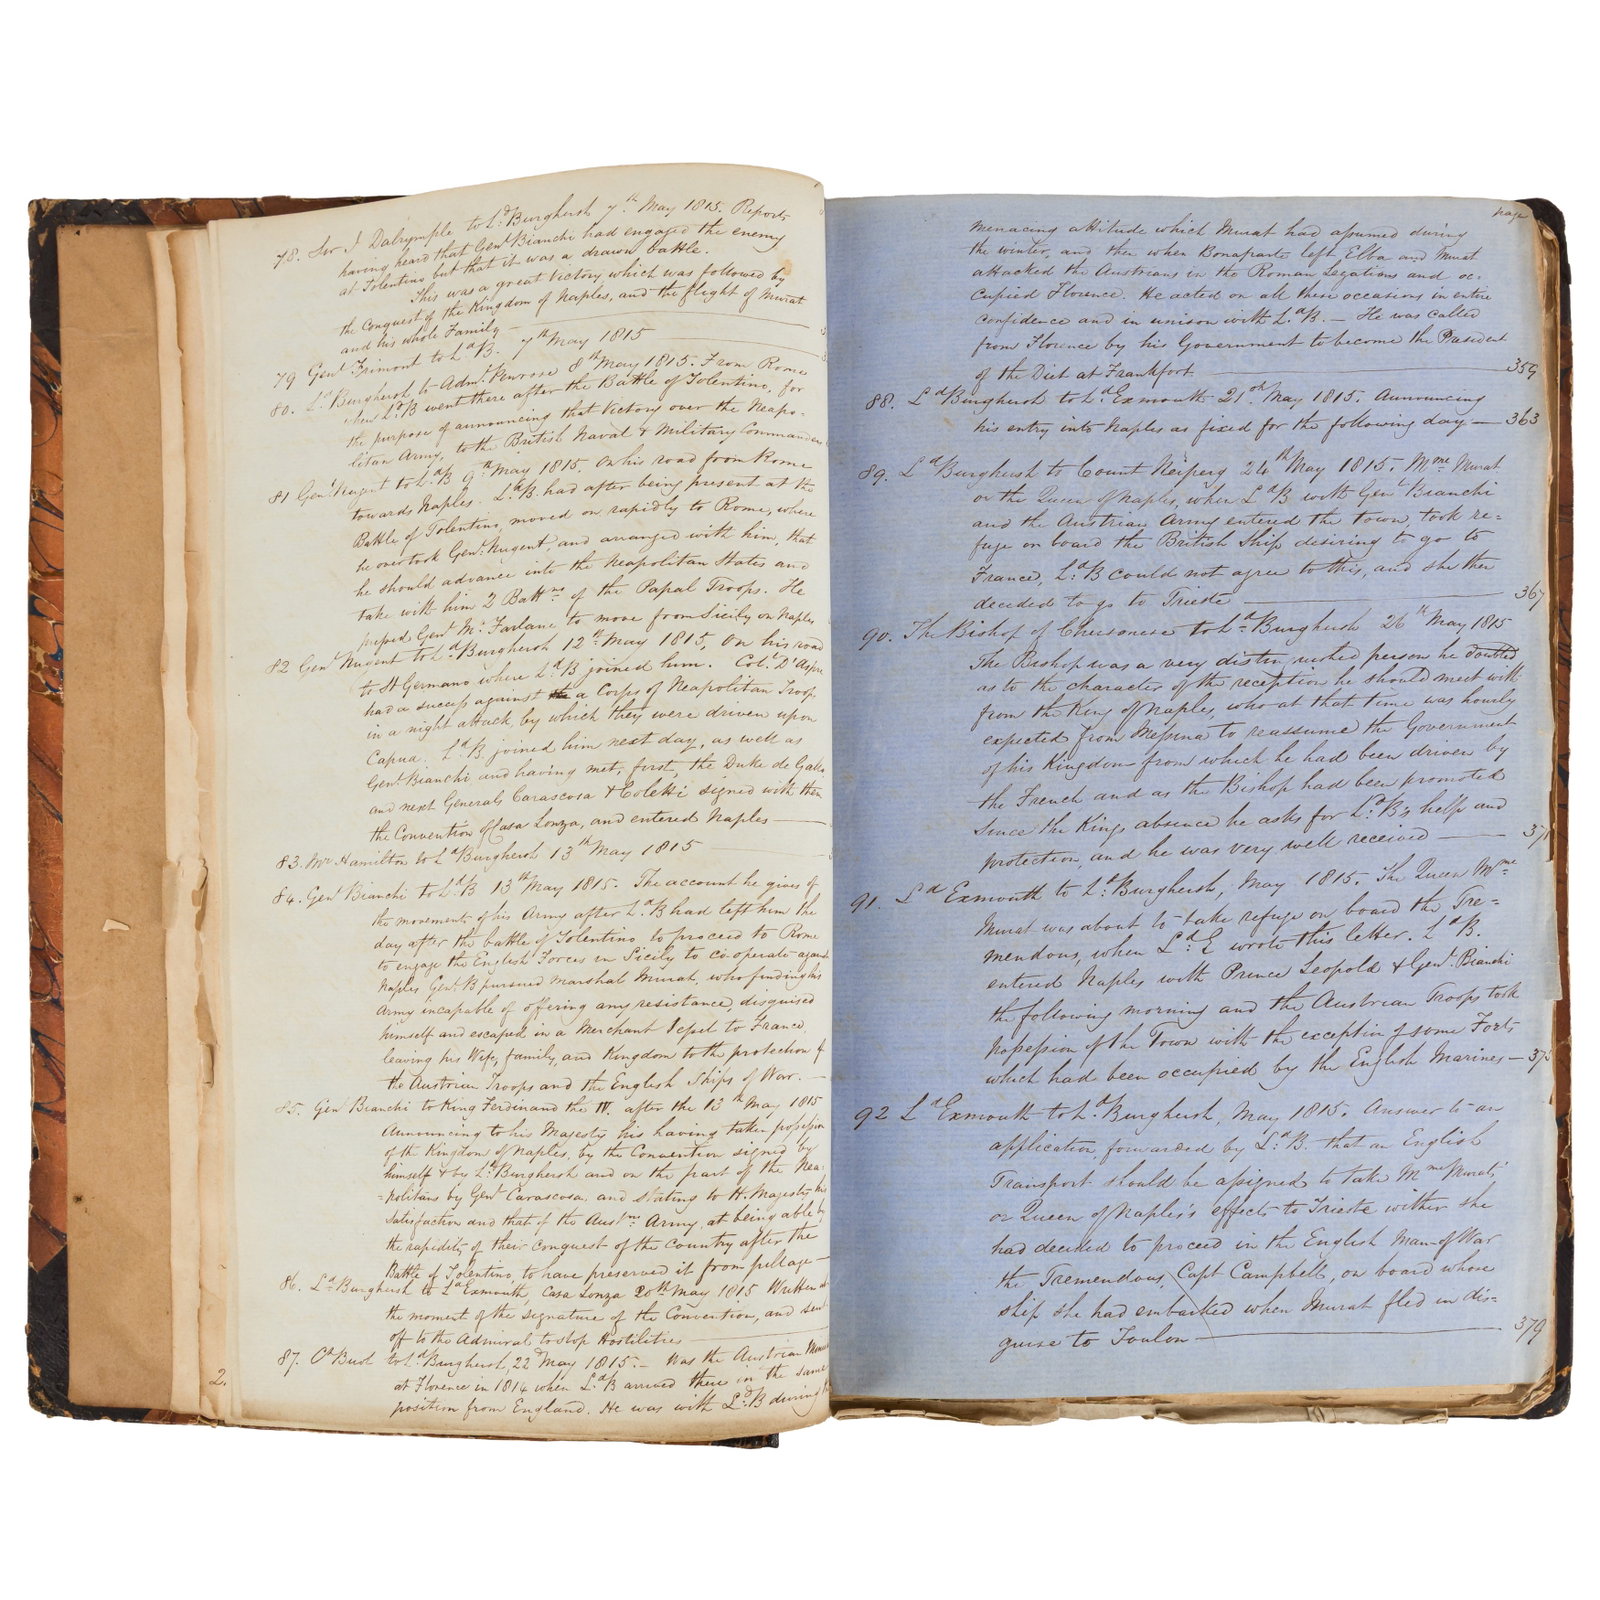 78. Sir J Dalrymple to Ld Burghersh 7th May 1815. Reports
having heard that Genl Bianchi had engaged the enemy
at Tolentino but that it was a drawn battle.
This was a great Victory which was followed by
the conquest of the Kingdom of Naples, and the flight of Murat
and his whole Family —
79 Genl Frimont to Ld B. 7th May 1815
80. Ld Burghersh to Adml Penrose 8th May 1815. From Rome
when Ld B went there after the Battle of Tolentino, for
the purpose of announcing that Victory over the Neapo-
litan Army, to the British Naval & Military Commanders
81 Genl Nugent to Ld B 9th May 1815. On his road from Rome
towards Naples. Ld B. had after being present at the
Battle of Tolentino, moved on rapidly to Rome, where
he overtook Genl Nugent, and arranged with him, that
he should advance into the Neapolitan States and
take with him 2 Battns of the Papal Troops. He
pressed Genl Mc Farlane to move from Sicily on Naples
82 Genl Nugent to Ld Burghersh 12th May 1815, On his road
to St Germano where Ld B joined him. Coll D'Aspre
had a success against a Corps of Neapolitan Troops
in a night attack, by which they were driven upon
Capua. Ld B joined him next day, as well as
Genl Bianchi and having met, first, the Duke de Gallo
and next Generals Carascosa & Coletti signed with them
the Convention of Casa Lonza, and entered Naples —
83. Mr Hamilton to Ld Burghersh 13th May 1815
84. Genl Bianchi to Ld B 13th May 1815. The account he gives of
the movements of his Army after Ld B had left him the
day after the battle of Tolentino to proceed to Rome
to engage the English Forces in Sicily to co-operate against
Naples Genl B pursued Marshal Murat, who finding his
Army incapable of offering any resistance, disguised
himself and escaped in a Merchant Vessel to France,
leaving his Wife, family, and Kingdom to the protection of
the Austrian Troops and the English Ships of War. —
85. Genl Bianchi to King Ferdinand the IV. after the 13th May 1815
Announcing to his Majesty his having taken possession
of the Kingdom of Naples, by the Convention signed by
himself & by Ld Burghersh and on the part of the Nea-
=politans by Genl Carascosa, and stating to H. Majesty his
satisfaction and that of the Austrn Army, at being able by
the rapidity of their conquest of the Country after the
Battle of Tolentino, to have preserved it from pillage —
86. Ld Burghersh to Ld Exmouth, Casa Lonza 20th May 1815 Written at
the moment of the signature of the Convention, and sent
off to the Admiral to stop Hostilities —
87. Ct Buol to Ld Burghersh, 22d May 1815. — Was the Austrian
at Florence in 1814 when Ld B arrived there in the same
position from England. He was with Ld B during
2.
page
menacing attitude which Murat had assumed during
the winter, and then when Bonaparte left Elba and Murat
attacked the Austrians in the Roman Legations and oc-
cupied Florence. He acted on all these occasions in entire
confidence and in unison with Ld B. — He was called
from Florence by his Government to become the President
of the Diet at Frankfort — 359
88. Ld Burghersh to Ld Exmouth 21st May 1815. Announcing
his entry into Naples as fixed for the following day — 363
89. Ld Burghersh to Count Neiperg 24th May 1815. Mme Murat
or the Queen of Naples, when Ld B with Genl Bianchi
and the Austrian Army entered the town, took re=
fuge on board the British Ship desiring to go to
France, Ld B could not agree to this, and she then
decided to go to Trieste — 367
90. The Bishop of Chersonese to Ld Burghersh 26th May 1815
The Bishop was a very distinguished person he doubted
as to the character of the reception he should meet with
from the King of Naples, who at that time was hourly
expected from Messina to reassume the Government
of his Kingdom from which he had been driven by
the French and as the Bishop had been promoted
since the Kings absence he asks for Ld B's help and
protection, and he was very well received — 371
91. Ld Exmouth to Ld Burghersh, May 1815. The Queen Mme
Murat was about to take refuge on board the Tre=
mendous, when Ld E wrote this letter. Ld B.
entered Naples with Prince Leopold & Genl Bianchi
the following morning and the Austrian Troops took
possession of the Town with the exception of some Forts
which had been occupied by the English Marines — 375
92 Ld Exmouth to Ld Burghersh, May 1815. Answer to an
application, forwarded by Ld B. that an English
Transport should be assigned to take Mme Murat,
or Queen of Naples's effects to Trieste wither she
had decided to proceed in the English Man-of War
the Tremendous, Capt Campbell, on board whose
ship she had embarked when Murat fled in dis=
guise to Toulon — 379